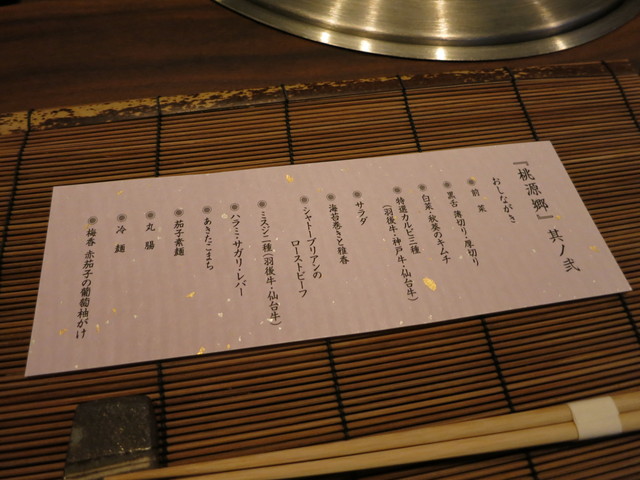 『桃源郷』其ノ弐
おしながき
前菜
黒舌 薄切り・厚切り
白菜・秋葵のキムチ
特選カルビ三種
(羽後牛・神戸牛・仙台牛)
サラダ
海苔巻きと雅春
シャトーブリアンの
ローストビーフ
ミスジ二種(羽後牛・仙台牛)
ハラミ・サガリ・レバー
あきたこまち
茄子素麺
丸腸
冷麺
梅香 赤茄子の葡萄袖がけ